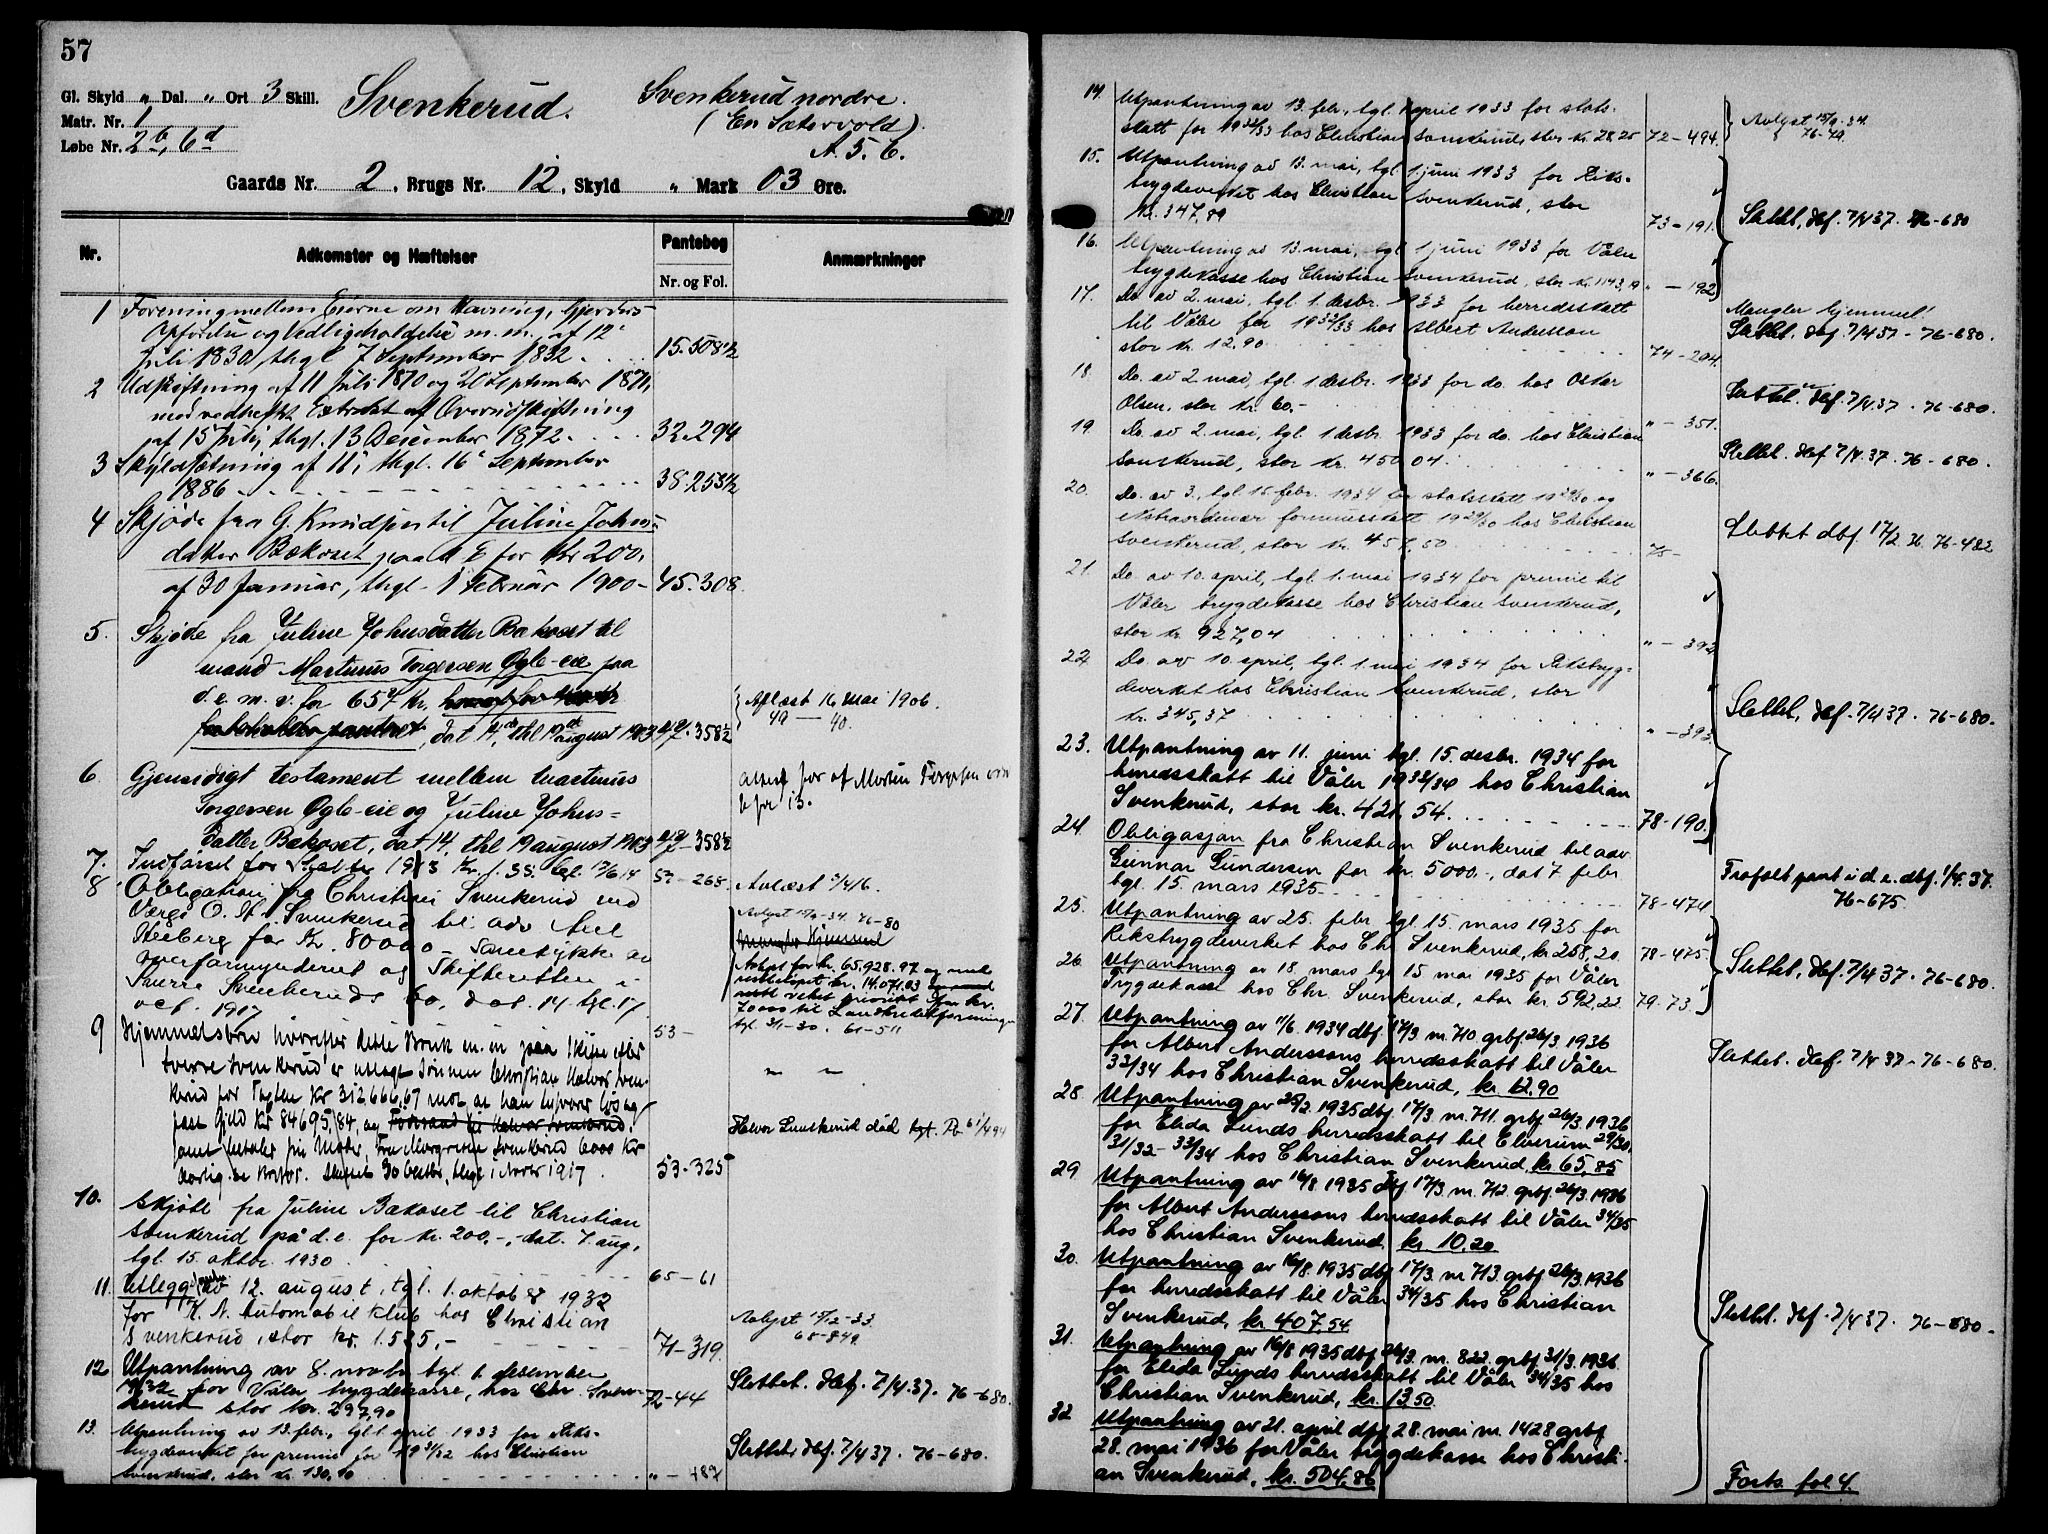 57
Gl. Skyld " Dal. " Ort 3 Skill. Svenkerud. Svenkerud nordre.
Matr. Nr. 1 (En Sætervold).
Løbe Nr. 2b, 6d A. 5. 6.
Gaards Nr. 2, Brugs Nr. 12, Skyld " Mark 03 Øre.
Nr. Adkomster og Hæftelser Pantebog Anmærkninger
Nr. og Fol.
1 Forening mellem Eierne om Havning, Gjerders
Opførelse og Vedligeholdelse m. m. af 12
juli 1830, thgl 7 September 1832. 15.508½
2 Udskiftning af 11 Juli 1870 og 20 September 1871,
med vedhæftet Extrakt af Overudskiftning
af 15 Juli, thgl. 13 December 1872. 32.294
3 Skyldsætning af 11, thgl. 16 September
1886 38.253½
4 Skjøde fra G. Knudsen til Juline Johns-
datter Bækoset paa d E for Kr 200,
af 30 Januar, thgl. 1 Februar 1900 - 45.308.
5. Skjøde fra Juline Johnsdatter Bækoset til
mand Martinus Torgersen Øgle-eie paa
d. e. m. v. for 657 kr,
dat 14de, thl 19de august 1903, 47.358½
} Aflæst 16 Mai 1906.
49 — 40.
6. Gjensidigt testament mellem Martinus
Torgersen Øgle-eie og Juline Johns=
datter Bækoset, dat 14. thl 19 august 1903 47-358½
7. Indførsel for Skatter 1913 Kr. 1.35. tgl. 15/6 14 52-268 Avlæst 5/4 16.
8 Obligation fra Christian Svenkerud ved
Værge O. H. Svenkerud til adv Axel
Heiberg for Kr. 80000 - Samtykke av
overformynderiet og Skifteretten i
Sverre Svenkeruds bo, dat. 14. tgl. 17.
oct. 1917 53-
Avlyst 15/9-34. 76-80
Mangler Hjemmel
Avlyst for kr. 65.928.97 og med
restbeløpet kr. 14.071.03
veket prioritet for kr.
70000 til Landkreditforeningen
tgl. 31-30. 61-511
9 Hjemmelsbrev hvorefter dette Bruk m. m. paa Skifte efter
Sverre Svenkerud er utlagt Sønnen Christian Halvor Sven-
kerud for Taxten Kr 312,666,67 mot at han
Gjeld Kr 84695,84, og
samt betaler sin Moder, Fru Margrethe Svenkerud 6000 Kr
aarlig. Skiftet 30 October, thgl 1 Novbr 1917. 53-325
Halvor Svenkerud død tgl. Pb 61/494
10. Skjøte fra Juline Bækoset til Christian
Svenkerud på d. e. for kr. 200,-, dat. 7. aug,
tgl. 15. oktbr. 1930 65-61
11. Utlegg av 12. august, tgl. 1. oktober 1932
for K. N. Automobil klub hos Christian
Svenkerud, stor kr. 1.535,- 71-319. Avlyst 15/12-33.
68-849.
12 Utpantning av 8. novbr tgl. 1 desember
1932 for Våler trygdekasse, hos Chr. Sven-
kerud stor kr. 297,90 72-44 Slettet. dbf. 7/4 37. 76-680.
13. Utpantning av 13. febr., tgl 1 april 1933 for Riks-
trygdeverket for premie for 1931/32 hos Christian
Svenkerud, stor kr. 130,10 " - 487 Slettet dbf. 7/4 37. 76-680.
14. Utpantning av 13. febr., tgl. 1 april 1933 for stats-
skatt for 1932/33 hos Christian Svenkerud, stor kr. 28.25 72-494. } Avlyst 15/9-34.
76-79.
15. Utpantning av 13. mai, tgl 1. juni 1933 for Riks-
trygdeverket hos Christian Svenkerud, stor
kr. 347,89 73-191. Slettet, dbf. 7/4 37. 76-680
16. Utpantning av 13. mai, tgl 1 juni 1933 for Våler
trygdekasse hos Christian Svenkerud, stor kr. 1143,19 " - 192.
17. Do av 2. mai, tgl. 1. desbr. 1933 for herredsskatt
til Våler for 1932/33 hos Albert Andersson
stor kr. 12.90. 74-294.
Mangler hjemmel!
Slettet, dbf. 7/4 37 - 76-680.
18. Do. av 2 mai, tgl. 1 desbr. 1933 for do. hos Oskar
Olsen, stor kr. 60.- " - 351. Slettet. dbf. 7/4 37. 76-680.
19. Do. av 2. mai, tgl. 1 desbr. 1933 for do. hos Christian
Svenkerud, stor kr. 450,04. " - 366. Slettet. dbf 7/4 37. 76-680.
20. Do. av 3., tgl. 15. febr. 1934 for statsskatt 1929/30 og
ekstraordinær formuesskatt 1929/30 hos Christian
Svenkerud, stor kr. 457,50 75- Slettet dbf 17/2 76-482
21. Do. av 10. april, tgl. 1. mai 1934 for premie til
Våler trygdekasse hos Christian Svenkerud,
stor kr. 927,04 " - 392
22. Do. av 10. april, tgl. 1. mai 1934 for Rikstryg-
deverket hos Christian Svenkerud, stor
kr. 345,37 " - 393. Slettet, dbf. 7/4 37. 76-680.
23. Utpantning av 11. juni tgl. 15. desbr. 1934 for
herredsskatt til Våler 1933/34 hos Christian
Svenkerud, stor kr. 421,54. 78-190.
24. Obligasjon fra Christian Svenkerud til adv.
Gunnar Gundersen for kr. 5000.-, dat 7 febr.
tgl. 15. mars 1935. 78-474. Frafalt pant i d. e. dbf. 1/4. 37.
76-675
25. Utpantning av 25. febr. tgl. 15. mars 1935 for
Rikstrygdeverket hos Chr. Svenkerud, kr. 258,20. 78-475.
26. Utpantning av 18 mars tgl 15 mai 1935 for Våler
Trygdekasse hos Chr. Svenkerud, stor kr. 592,22 79-73. Slettet, dbf. 7/4 37. 76-680.
27. Utpantning av 11/6. 1934 dbf. 17/3. nr. 710 grbf. 26/3 1936
for Albert Anderssons herredsskatt til Våler
33/34 hos Christian Svenkerud, kr. 12,90 Slettet. dbf. 7/4 37 - 76-680.
28. Utpantning av 25/2. 1935 dbf. 17/3. nr. 711. grbf. 26/3 1936
for Elida Lunds herredsskatt til Elverum 29/30,
31/32 - 33/34 hos Christian Svenkerud, kr 65,85
29 Utpantning av 16/8 1935 dbf. 17/3. nr. 712. grbf. 26/3. 1936
for Albert Anderssons herredsskatt til Våler 34/35
hos Christian Svenkerud kr 10,20
30. Utpantning av 16/8. 1935 dbf 17/3. nr 713. grbf. 26/3. 1936
for herredsskatt til Våler 34/35 hos Christian
Svenkerud, kr 407,54 Slettet. dbf. 7/4 37. 76-680.
31. Utpantning av 16/8 1935 dbf 26/3. nr. 822. grbf. 31/3. 1936.
for Elida Lunds herredsskatt til Våler 34/35 hos
Christian Svenkerud, kr. 13.50
32 Utpantning av 21. april dbf 28. mai nr 1428 grbf
28. mai 1936 for Våler trygdekasse hos Christi-
an Svenkerud, kr. 504,86 Forts. fol 4.